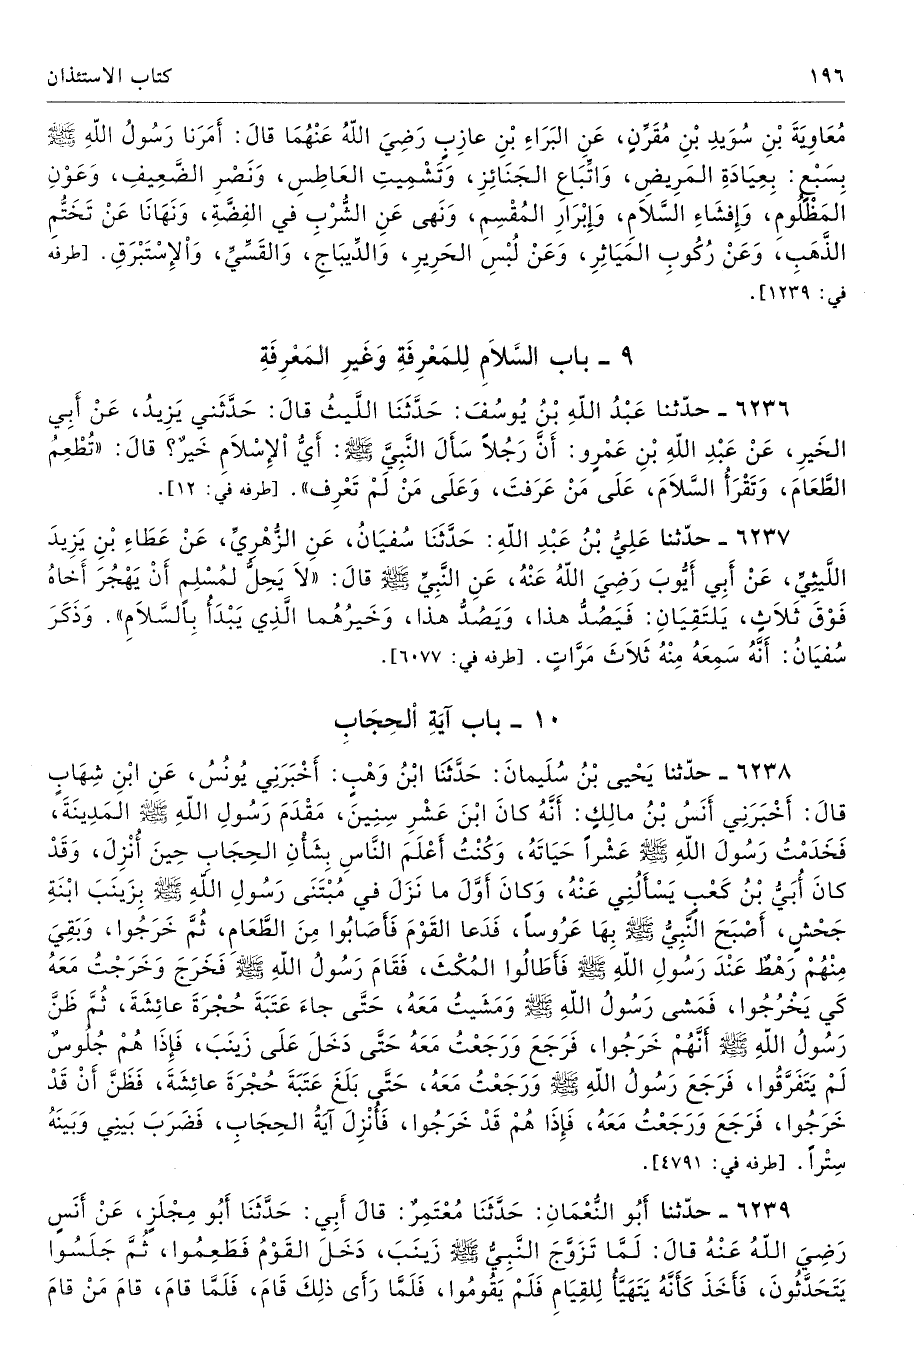 ١٩٦ كتاب الاستئذان
مُعَاوِيَةَ بْنِ سُوَيدِ بْنِ مُقَرِّنٍ، عَنِ البَرَاءِ بْنِ عازِبٍ رَضِيَ اللّهُ عَنْهُمَا قالَ: أَمَرَنا رَسُولُ اللّهِ ﷺ
بِسَبْعٍ: بِعِيَادَةِ المَرِيضِ، وَاتِّبَاعِ الجَنَائِزِ، وَتَشْمِيتِ العَاطِسِ، وَنَصْرِ الضَّعِيفِ، وَعَوْنِ
المَظْلُومِ، وَإِفشَاءِ السَّلاَمِ، وَإِبْرَارِ المُقْسِمِ، وَنَهى عَنِ الشُّرْبِ في الفِضَّةِ، وَنَهَانَا عَنْ تَخَتُّمِ
الذَّهَبِ، وَعَنْ رُكُوبِ المَيَاثِرِ، وَعَنْ لُبْسِ الحَرِيرِ، وَالدِّيبَاجِ، وَالقَسِّيِّ، وَالإِسْتَبْرَقِ. [طرفه
في: ١٢٣٩].
٩ ـ باب السَّلاَمِ لِلمَعْرِفَةِ وَغَيرِ المَعْرِفَةِ
٦٢٣٦ ـ حدّثنا عَبْدُ اللّهِ بْنُ يُوسُفَ: حَدَّثَنَا اللَّيثُ قالَ: حَدَّثَني يَزِيدُ، عَنْ أَبِي
الخَيرِ، عَنْ عَبْدِ اللّهِ بْنِ عَمْرٍو: أَنَّ رَجُلاً سَأَلَ النَّبِيَّ ﷺ: أَيُّ الإِسْلاَمِ خَيرٌ؟ قالَ: «تُطْعِمُ
الطَّعَامَ، وَتَقْرَأُ السَّلاَمَ، عَلَى مَنْ عَرَفتَ، وَعَلَى مَنْ لَمْ تَعْرِف». [طرفه في: ١٢].
٦٢٣٧ ـ حدّثنا عَلِيُّ بْنُ عَبْدِ اللّهِ: حَدَّثَنَا سُفيَانُ، عَنِ الزُّهْرِيِّ، عَنْ عَطَاءِ بْنِ يَزِيدَ
اللَّيثِيِّ، عَنْ أَبِي أَيُّوبَ رَضِيَ اللّهُ عَنْهُ، عَنِ النَّبِيِّ ﷺ قالَ: «لاَ يَحِلُّ لمُسْلِمٍ أَنْ يَهْجُرَ أَخاهُ
فَوْقَ ثَلاَثٍ، يَلتَقِيَانِ: فَيَصُدُّ هذا، وَيَصُدُّ هذا، وَخَيرُهُما الَّذِي يَبْدَأُ بِالسَّلاَمِ». وَذَكَرَ
سُفيَانُ: أَنَّهُ سَمِعَهُ مِنْهُ ثَلاَثَ مَرَّاتٍ. [طرفه في: ٦٠٧٧].
١٠ ـ باب آيَةِ الحِجَابِ
٦٢٣٨ ـ حدّثنا يَحْيى بْنُ سُلَيمانَ: حَدَّثَنَا ابْنُ وَهْبٍ: أَخْبَرَنِي يُونُسُ، عَنِ ابْنِ شِهَابٍ
قالَ: أَخْبَرَنِي أَنَسُ بْنُ مالِكٍ: أَنَّهُ كانَ ابْنَ عَشْرِ سِنِينَ، مَقْدَمَ رَسُولِ اللّهِ ﷺ المَدِينَةَ،
فَخَدَمْتُ رَسُولَ اللّهِ ﷺ عَشْراً حَيَاتَهُ، وَكُنْتُ أَعْلَمَ النَّاسِ بِشَأْنِ الحِجَابِ حِينَ أُنْزِلَ، وَقَدْ
كانَ أُبَيُّ بْنُ كَعْبٍ يَسْأَلُنِي عَنْهُ، وَكانَ أَوَّلَ ما نَزَلَ في مُبْتَنَى رَسُولِ اللّهِ ﷺ بِزَينَبَ ابْنَةِ
جَحْشٍ، أَصْبَحَ النَّبِيُّ ﷺ بِهَا عَرُوساً، فَدَعا القَوْمَ فَأَصَابُوا مِنَ الطَّعَامِ، ثُمَّ خَرَجُوا، وَبَقِيَ
مِنْهُمْ رَهْطٌ عَنْدَ رَسُولِ اللّهِ ﷺ فَأَطَالُوا المُكْثَ، فَقَامَ رَسُولُ اللّهِ ﷺ فَخَرَجَ وَخَرَجْتُ مَعَهُ
كَي يَخْرُجُوا، فَمَشى رَسُولُ اللّهِ ﷺ وَمَشَيتُ مَعَهُ، حَتَّى جاءَ عَتَبَةَ حُجْرَةِ عائِشَةَ، ثُمَّ ظَنَّ
رَسُولُ اللّهِ ﷺ أَنَّهُمْ خَرَجُوا، فَرَجَعَ وَرَجَعْتُ مَعَهُ حَتَّى دَخَلَ عَلَى زَينَبَ، فَإِذَا هُمْ جُلُوسٌ
لَمْ يَتَفَرَّقُوا، فَرَجَعَ رَسُولُ اللّهِ ﷺ وَرَجَعْتُ مَعَهُ، حَتَّى بَلَغَ عَتَبَةَ حُجْرَةِ عائِشَةَ، فَظَنَّ أَنْ قَدْ
خَرَجُوا، فَرَجَعَ وَرَجَعْتُ مَعَهُ، فَإِذَا هُمْ قَدْ خَرَجُوا، فَأُنْزِلَ آيَةُ الحِجَابِ، فَضَرَبَ بَينِي وَبَينَهُ
سِتْراً. [طرفه في: ٤٧٩١].
٦٢٣٩ ـ حدّثنا أَبُو النُّعْمَانِ: حَدَّثَنَا مُعْتَمِرٌ: قالَ أَبِي: حَدَّثَنَا أَبُو مِجْلَزٍ، عَنْ أَنَسٍ
رَضِيَ اللّهُ عَنْهُ قالَ: لَمَّا تَزَوَّجَ النَّبِيُّ ﷺ زَينَبَ، دَخَلَ القَوْمُ فَطَعِمُوا، ثُمَّ جَلَسُوا
يَتَحَدَّثُونَ، فَأَخَذَ كَأَنَّهُ يَتَهَيَّأُ لِلقِيَامِ فَلَمْ يَقُومُوا، فَلَمَّا رَأَى ذلِكَ قَامَ، فَلَمَّا قامَ، قامَ مَنْ قامَ